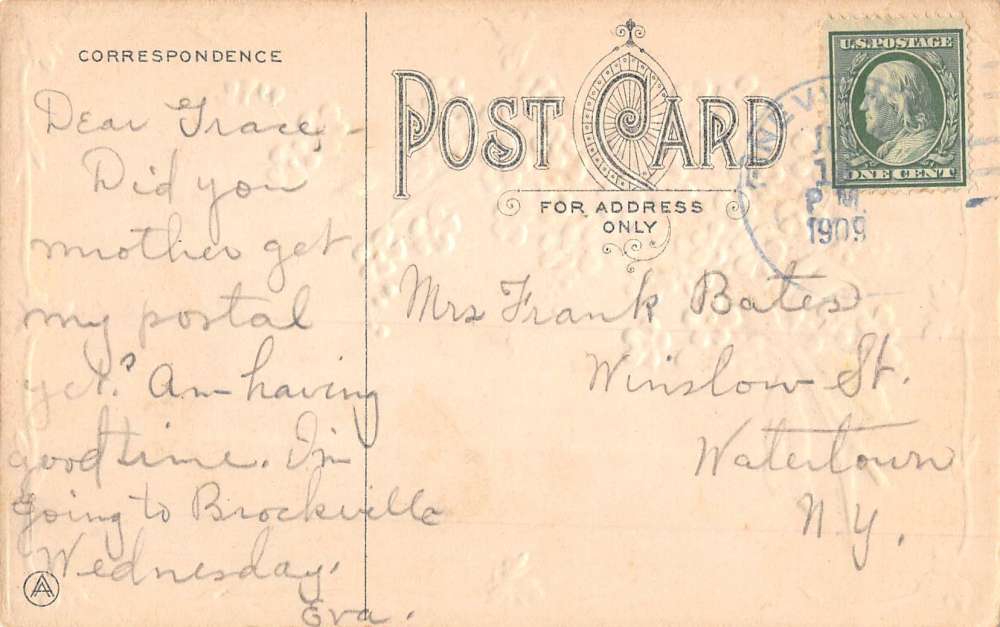 CORRESPONDENCE
Dear Grace –
Did you
mother get
my postal
yet? Am having
good time. I'm
going to Brockville
Wednesday.
Eva.
POST CARD
FOR ADDRESS
ONLY
U.S. POSTAGE
ONE CENT
P M
1909
Mrs Frank Bates
Winslow St.
Watertown
N.Y.